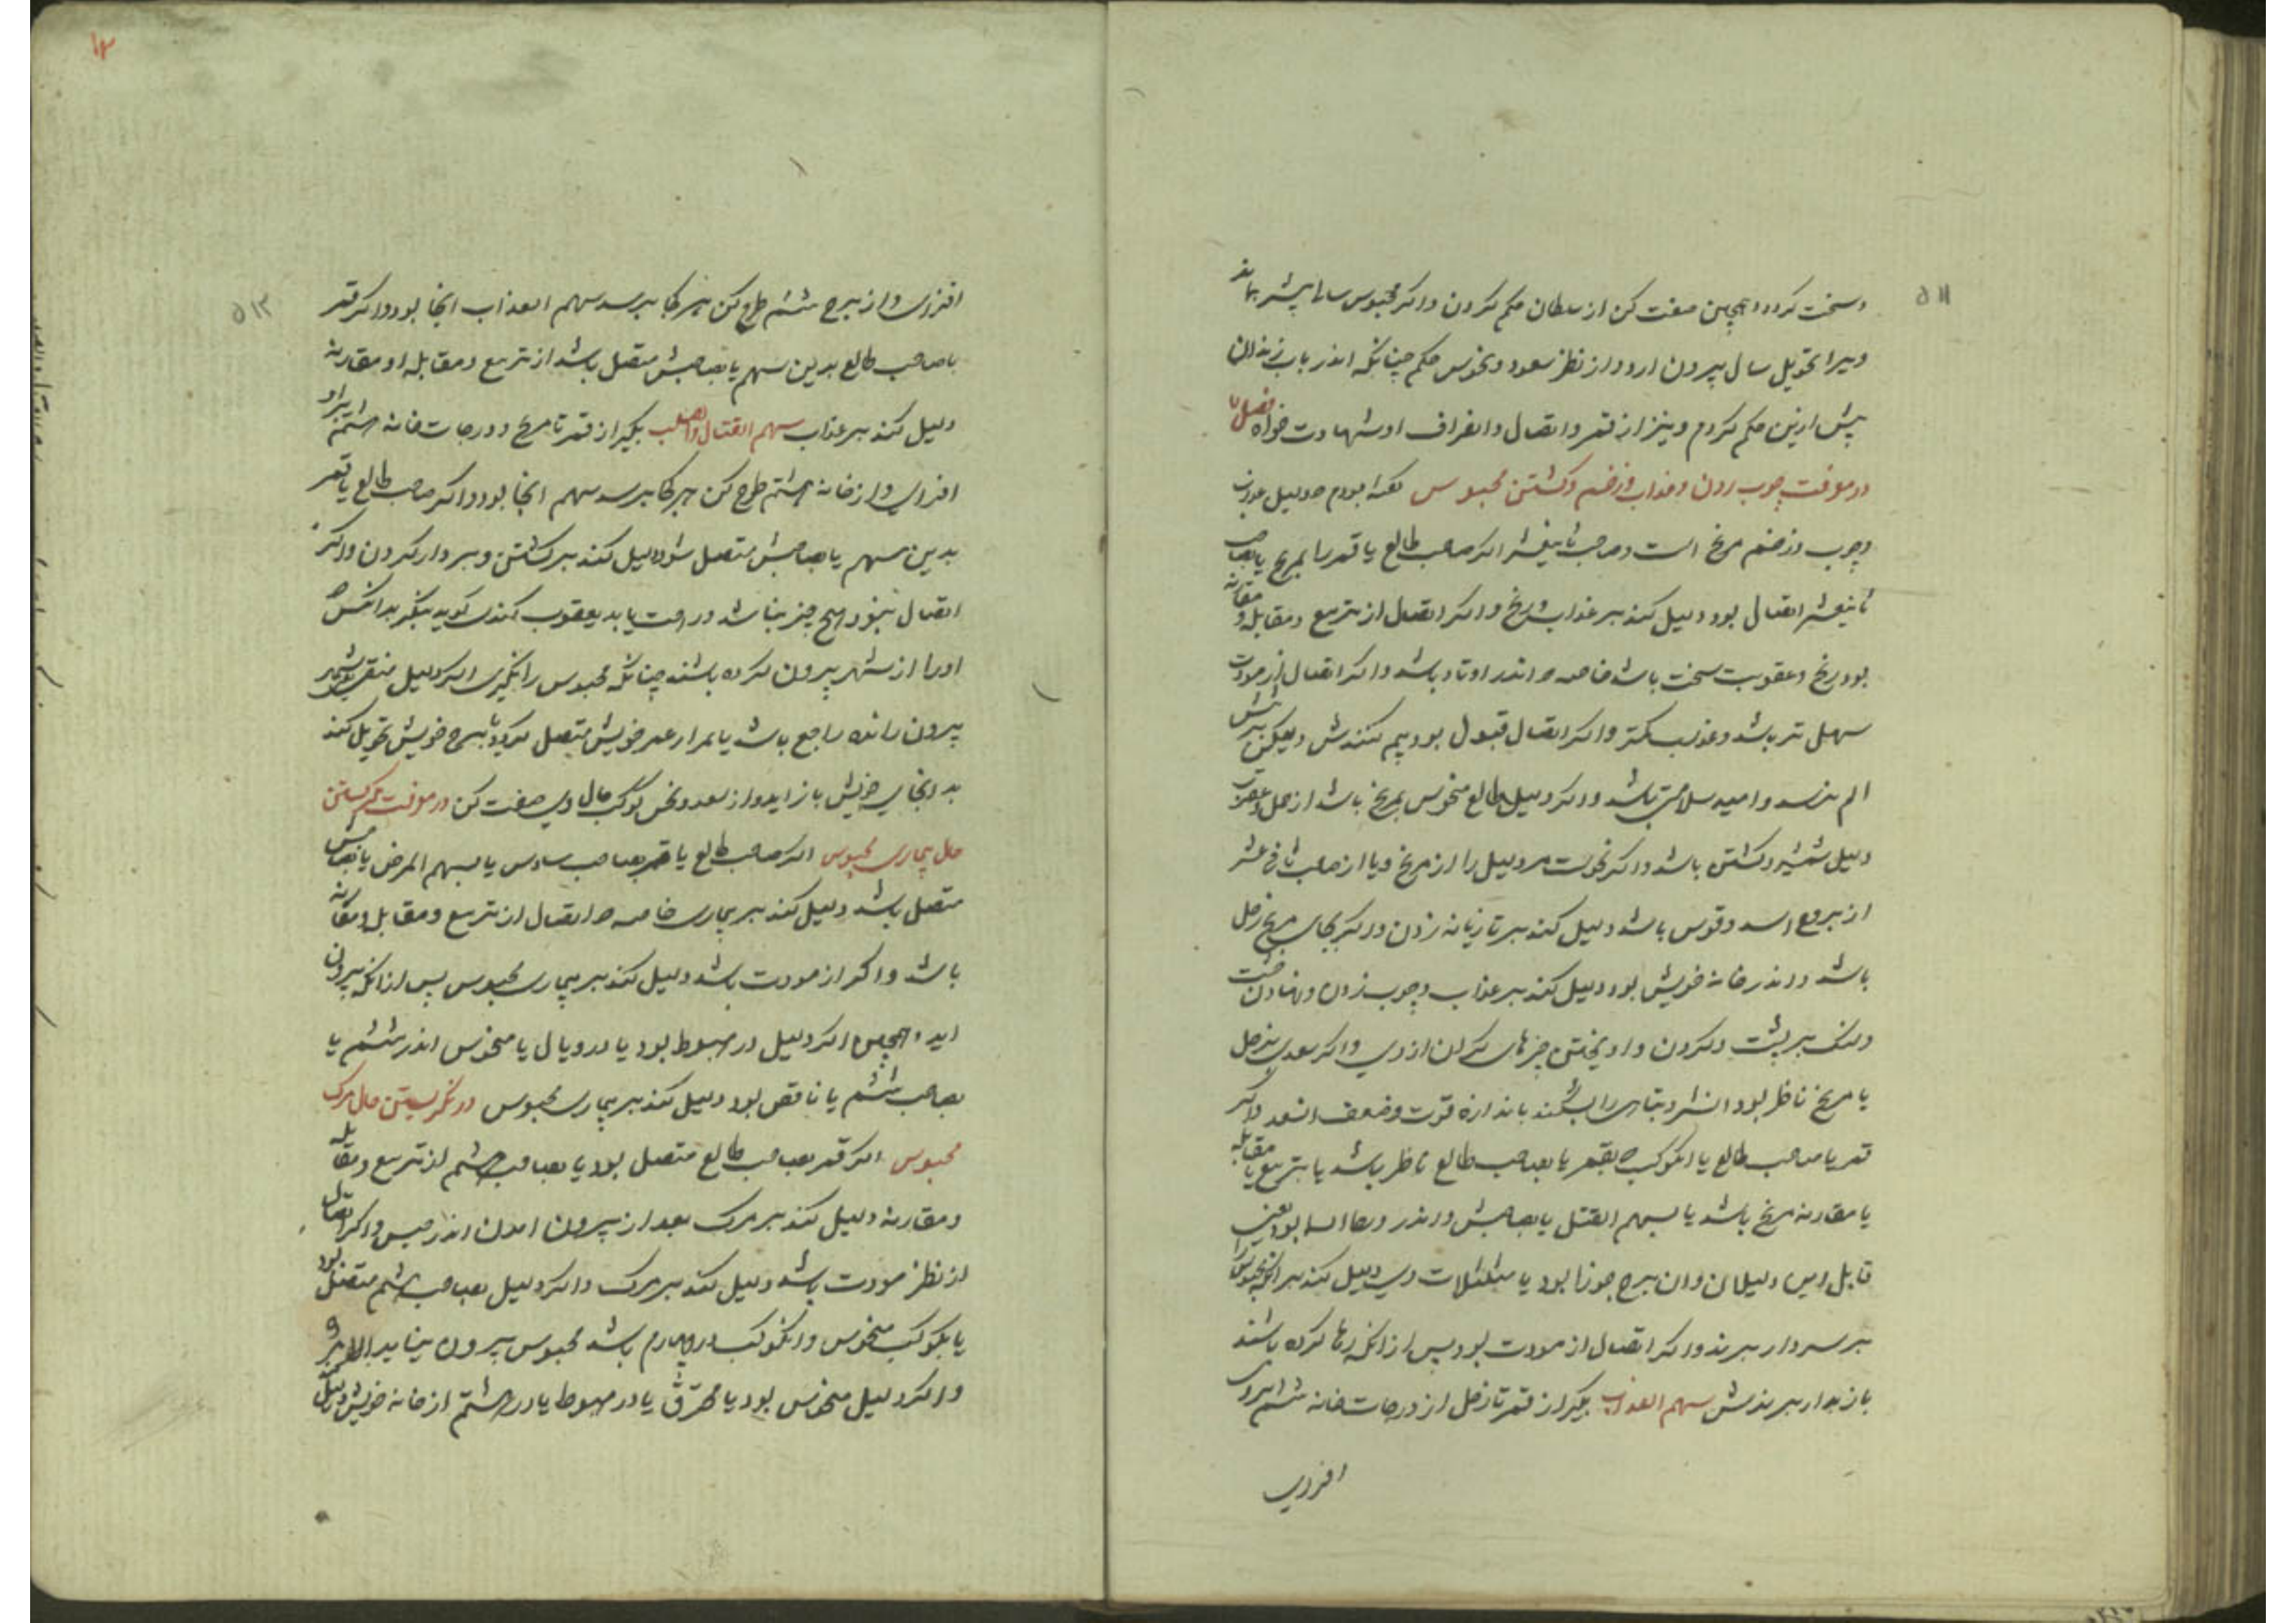 ۵۱۱
وسخت کردد و همچنین صفت کن از سلطان حکم کردن و اکر محبوس سالها بیشتر بماند
ویرا تحویل سال بیرون ارد و از نظر سعود و نحوس حکم چنانکه اندر باب زندان
پیش ازین حکم کردم و نیز از قمر و اتصال و انصراف او شهادت خواه فصل
در معرفت چوب زدن و عذاب و زخم و کشتن محبوس گفته بودم دلیل عذاب
و چوب و زخم مریخ است و صاحب ثانیعشر اکر صاحب طالع یا قمر را بمریخ یا بصاحب
ثانیعشر اتصال بود دلیل کند بر عذاب و رنج و اکر اتصال از تربیع و مقابله و مقارنه
بود رنج و عقوبت سخت باشد خاصه اندر اوتاد باشد و اکر اتصال از مودت
سهل تر باشد و عذاب کمتر و اکر اتصال قبول بود بیم کنندش ولیکن بیش
الم نرسد و امید سلامتی باشد و اکر دلیل طالع منحوس بمریخ باشد از حمل و عقرب
دلیل شمشیر و کشتن باشد و اکر نحوست مر دلیل را از مریخ و یا از صاحب ثانی عشر
از بروج اسد و قوس باشد دلیل کند بر تازیانه زدن و اکر بجای مریخ زحل
باشد و اندر خانه خویش بود دلیل کند بر عذاب و چوب زدن و نهادن خشت
وسنک بر پشت و کردن و اویختن چیزهای کران از وی و اکر سعدی بزحل
یا مریخ ناظر بود ان شر و تباهی را بشکند باندازه قوت و ضعف ان سعد و اکر
قمر یا صاحب طالع یا انکوکب بقمر یا بصاحب طالع ناظر باشد یا بتربیع یا مقابله
یا مقارنه مریخ باشد یا بسهم القتل یا بصاحبش و اندر بود یعنی
قابل این دلیلان و ان برج جوزا بود یا مثلثات وی دلیل کند بر انکه محبوس را
بر سر دار برند و اکر اتصال از مودت بود پس از انکه رها کرده باشند
باز بدار برندش سهم العذاب بکیر از قمر تا زحل از درجات خانه ششم بروی
افزای
۵۱۲
افزای و از برج ششم طرح کن هر کجا برسد سهم العذاب انجا بود و اکر قمر
با صاحب طالع بدین سهم یا بصاحبش متصل باشد از تربیع و مقابله و مقارنه
دلیل کند بر عذاب سهم القتال والصلب بکیر از قمر تا مریخ و درجات خانه هشتم براو
افزای و از خانه هشتم طرح کن هر کجا برسد سهم انجا بود و اکر صاحب طالع یا قمر
بدین سهم یا بصاحبش متصل شود دلیل کند بر کشتن و بر دار کردن و اکر
اتصال نبود هیچ چیز نباشد و راحت یابد یعقوب کندی کوید بنکر بدانکس که
اورا از شهر بیرون کرده باشند چنانکه محبوس را نکری اکر دلیل
بیرون رانده راجع باشد یا بمراد عمر خویش متصل کردد یا ببرج خویش تحویل کند
بدانجای خویش باز اید و از سعد و نحس کوکب حال وی صفت کن در معرفت حکم کستن
حال بیماری محبوس اکر صاحب طالع یا قمر بصاحب سادس یا بسهم المرض یا بصاحبش
متصل باشد دلیل کند بر بیماری خاصه اتصال از تربیع و مقابله و مقارنه
باشد و اکر از مودت باشد دلیل کند بر بیماری محبوس پس از انکه بیرون
اید و همچنین اکر دلیل در هبوط بود یا در وبال یا منحوس اندر ششم یا
بصاحب ششم یا ناقص بود دلیل کند بر بیماری محبوس در نکریستن حال مرک
محبوس اکر قمر بصاحب طالع متصل بود یا بصاحب هشتم از تربیع و مقابله
و مقارنه دلیل کند بر مرک بعد از بیرون امدن اندر حبس و اکر اتصال
از نظر مودت باشد دلیل کند بر مرک و اکر دلیل بصاحب هشتم متصل بود
یا بکوکب منحوس و انکوکب در چهارم باشد محبوس بیرون نیاید الا بمرک و
و اکر دلیل منحوس بود یا محترق یا در هبوط یا در هشتم از خانه خویش دلیل